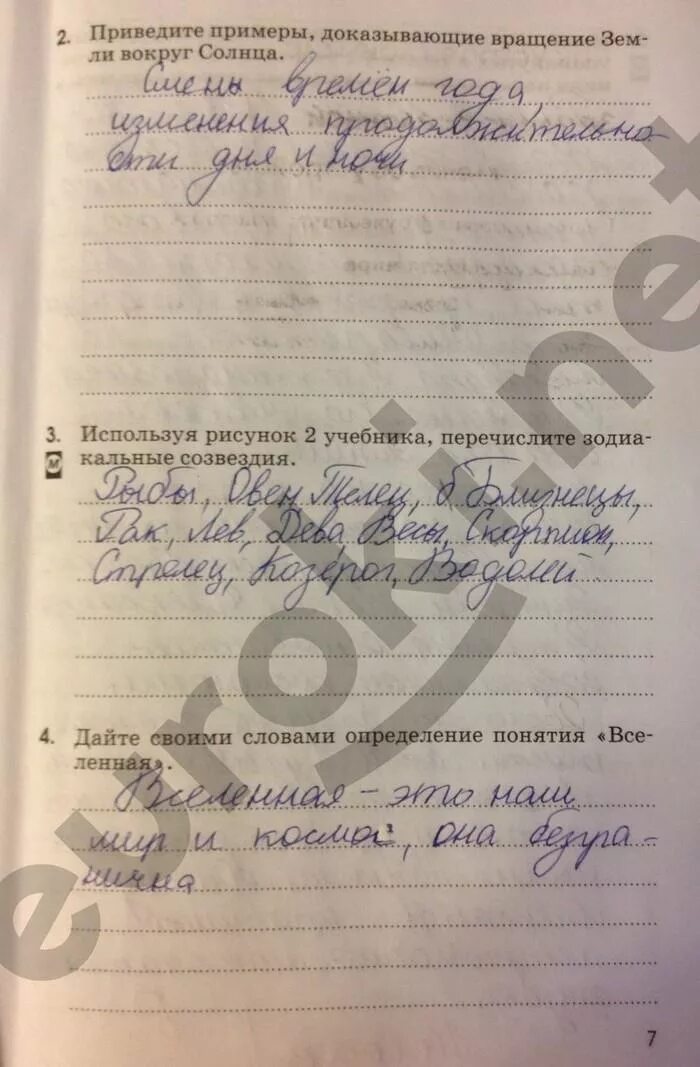 2. Приведите примеры, доказывающие вращение Зем-
ли вокруг Солнца.
Смены времён года,
изменения продолжительно-
сти дня и ночи
3. Используя рисунок 2 учебника, перечислите зодиа-
М кальные созвездия.
Рыбы, Овен Телец, б Близнецы,
Рак, Лев, Дева Весы, Скорпион,
Стрелец, Козерог, Водолей
4. Дайте своими словами определение понятия «Все-
ленная».
Вселенная – это наш
мир и космос, она безгра-
нична
7
euroki.net